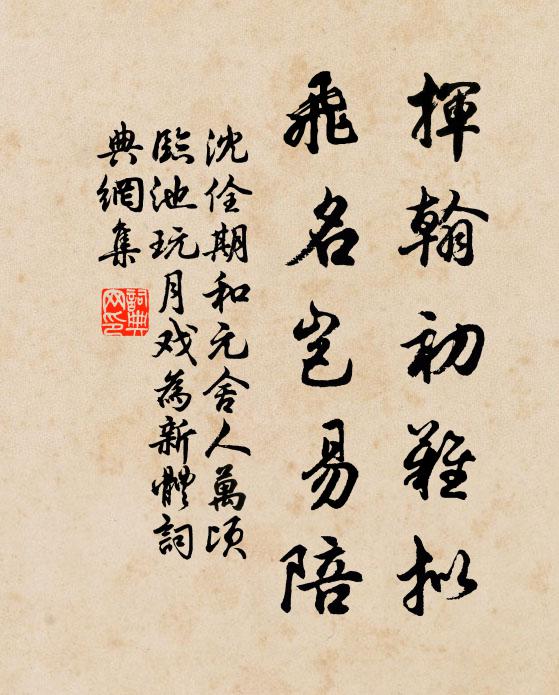 揮翰初難擬
飛名豈易陪
沈佺期和元舍人萬頃
臨池玩月戏為新體詞
典網集
詞典
网印